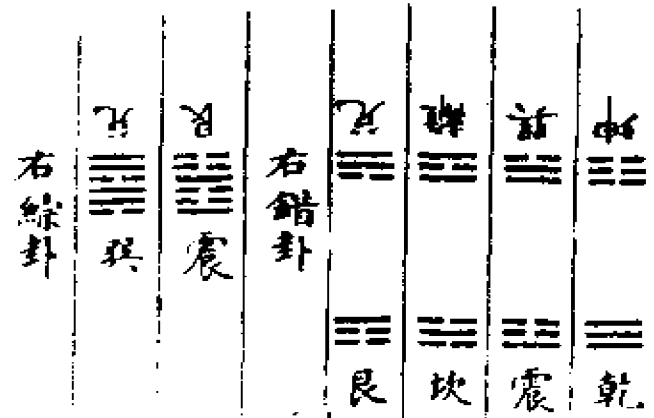 坤
乾
巽
震
離
坎
兌
艮
右錯卦
艮
震
兌
巽
右綜卦